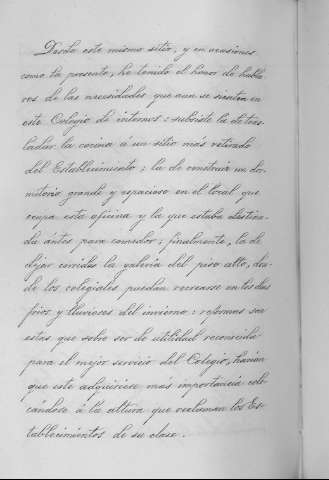 Desde este mismo sitio, y en ocasiones
como la presente, he tenido el honor de habla-
ros de las necesidades que aun se sienten en
este Colegio de internos: subsiste la de tras-
ladar la cocina á un sitio más retirado
del Establecimiento; la de construir un dor-
mitorio grande y espacioso en el local que
ocupa esta oficina y la que estaba destina-
da ántes para comedor; finalmente, la de
dejar corrida la galería del piso alto, don-
de los colegiales puedan recrearse en los dias
frios y lluviosos del invierno: reformas son
estas que sobre ser de utilidad reconocida
para el mejor servicio del Colegio, harian
que este adquiriese mas importancia colo-
cándose á la altura que reclaman los Es-
tablecimientos de su clase.